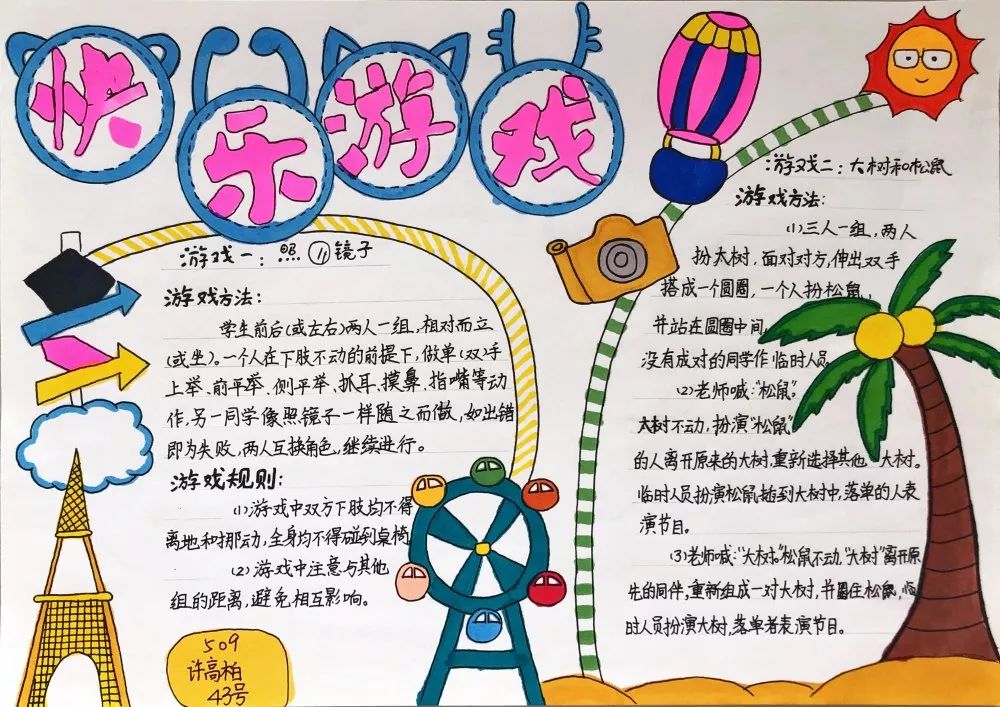 快乐游戏
游戏一：照镜子
游戏方法：
学生前后(或左右)两人一组，相对而立
(或坐)。一个人在下肢不动的前提下，做单(双)手
上举、前平举、侧平举、抓耳、摸鼻、指嘴等动
作，另一同学像照镜子一样随之而做，如出错
即为失败，两人互换角色，继续进行。
游戏规则：
(1)游戏中双方下肢均不得
离地和挪动，全身均不得碰到桌椅
(2)游戏中注意与其他
组的距离，避免相互影响。
509
许高柏
43号
游戏二：大树和松鼠
游戏方法：
(1)三人一组，两人
扮大树，面对对方，伸出双手
搭成一个圆圈，一个人扮松鼠，
并站在圆圈中间，
没有成对的同学作临时人员
(2)老师喊：“松鼠”
大树不动，扮演“松鼠”
的人离开原来的大树，重新选择其他大树。
临时人员扮演松鼠，插到大树中，落单的人表
演节目。
(3)老师喊：“大树”。松鼠不动，“大树”离开原
先的同伴，重新组成一对大树，并圈住松鼠，临
时人员扮演大树，落单者表演节目。